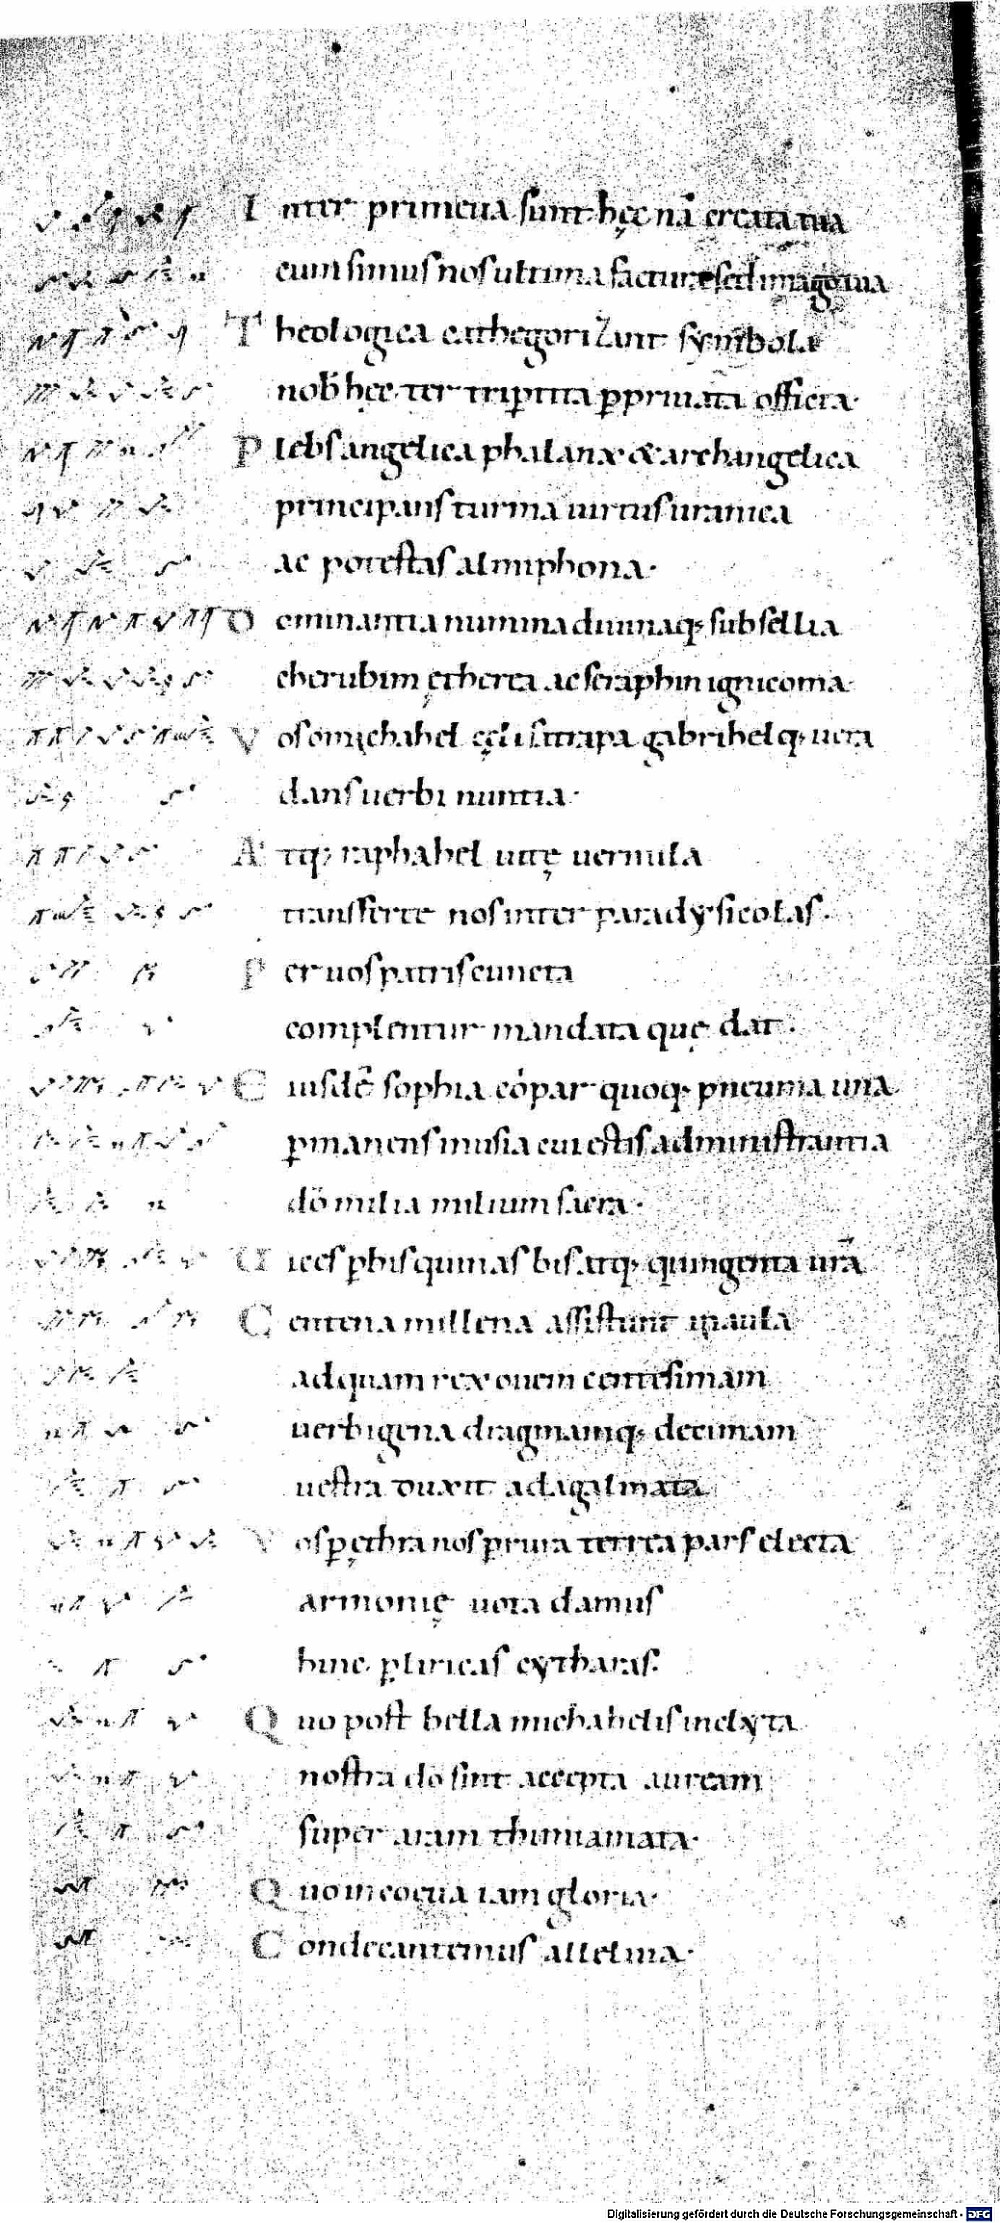 Inter primeua sunt hęc nā creata tua
cum simus nos ultima factura sed imago tua
Theologica cathegorizant symbola
nob̄ hęc ter tripꝑtita ꝑ priuata officia·
Plebs angelica phalanx & archangelica
principans turma uirtus uranica
ac potestas almiphona·
Dominantia numina diuinaq; subsellia
cherubim ętherea ac seraphin ignicoma
Vos o michahel cęli satrapa gabrihel q; uera
dans uerbi nuntia·
Atq; raphahel uitę uernula
transferte nos inter paradysicolas·
Per uos patris cuncta
complentur mandata quę dat·
Eiusdē sophia cōpar quoq; pneuma una
ꝑmanens in usia cui estis administrantia
dō milia milium sacra·
Uices ꝑ bis quinas bis atq; quingenta urā
Centena millena assistunt in aula
ad quam rex ouem centesimam
uerbigena dragmamq; decimam
uestra duxit ad agalmata
Vos ꝑ ęthra nos ꝑ rura terrea pars electa
armonię uota damus
hinc ꝑ liricas cytharas·
Quo post bella michahelis inclyta
nostra dō sint accepta auream
super aram thimiamata·
Quo in coęua iam gloria·
Condecantemus alleluia·
Digitalisierung gefördert durch die Deutsche Forschungsgemeinschaft - DFG